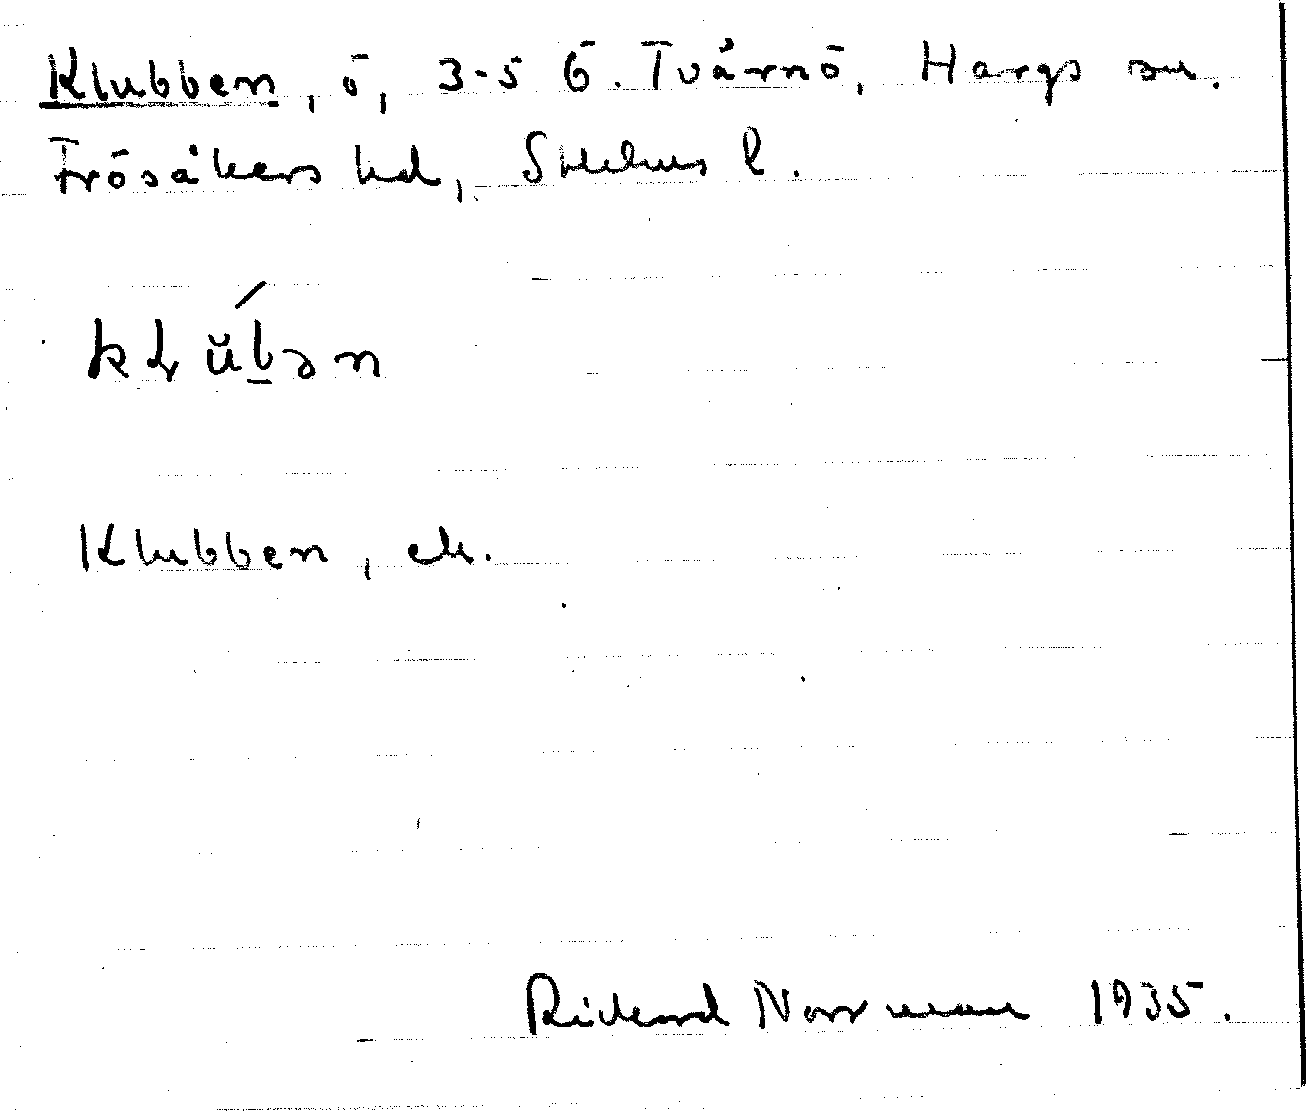 Klubben, ö, 3-5 6. Tvärnö, Hargs sn.
Frösåkers hd, Sthlms l.
Klubben, ek.
Rickard Norrman 1935.